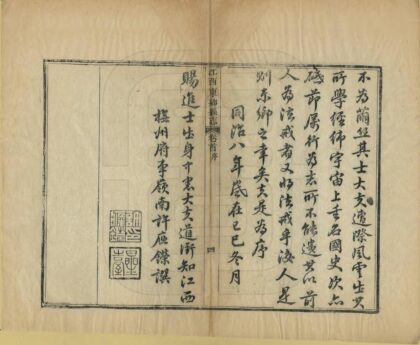 不為繭絲其士大夫遭際風雲出其
所學經緯宇宙上書名國史次亦
砥節厲行為志所不能遺夫以前
人為法戒者又將法戒乎後人是
則東鄉之幸矣夫是為序
同治八年歲在己巳冬月
江西東鄉縣志 卷首序 四
賜進士出身中憲大夫道銜知江西
撫州府事嶺南許應鑅撰